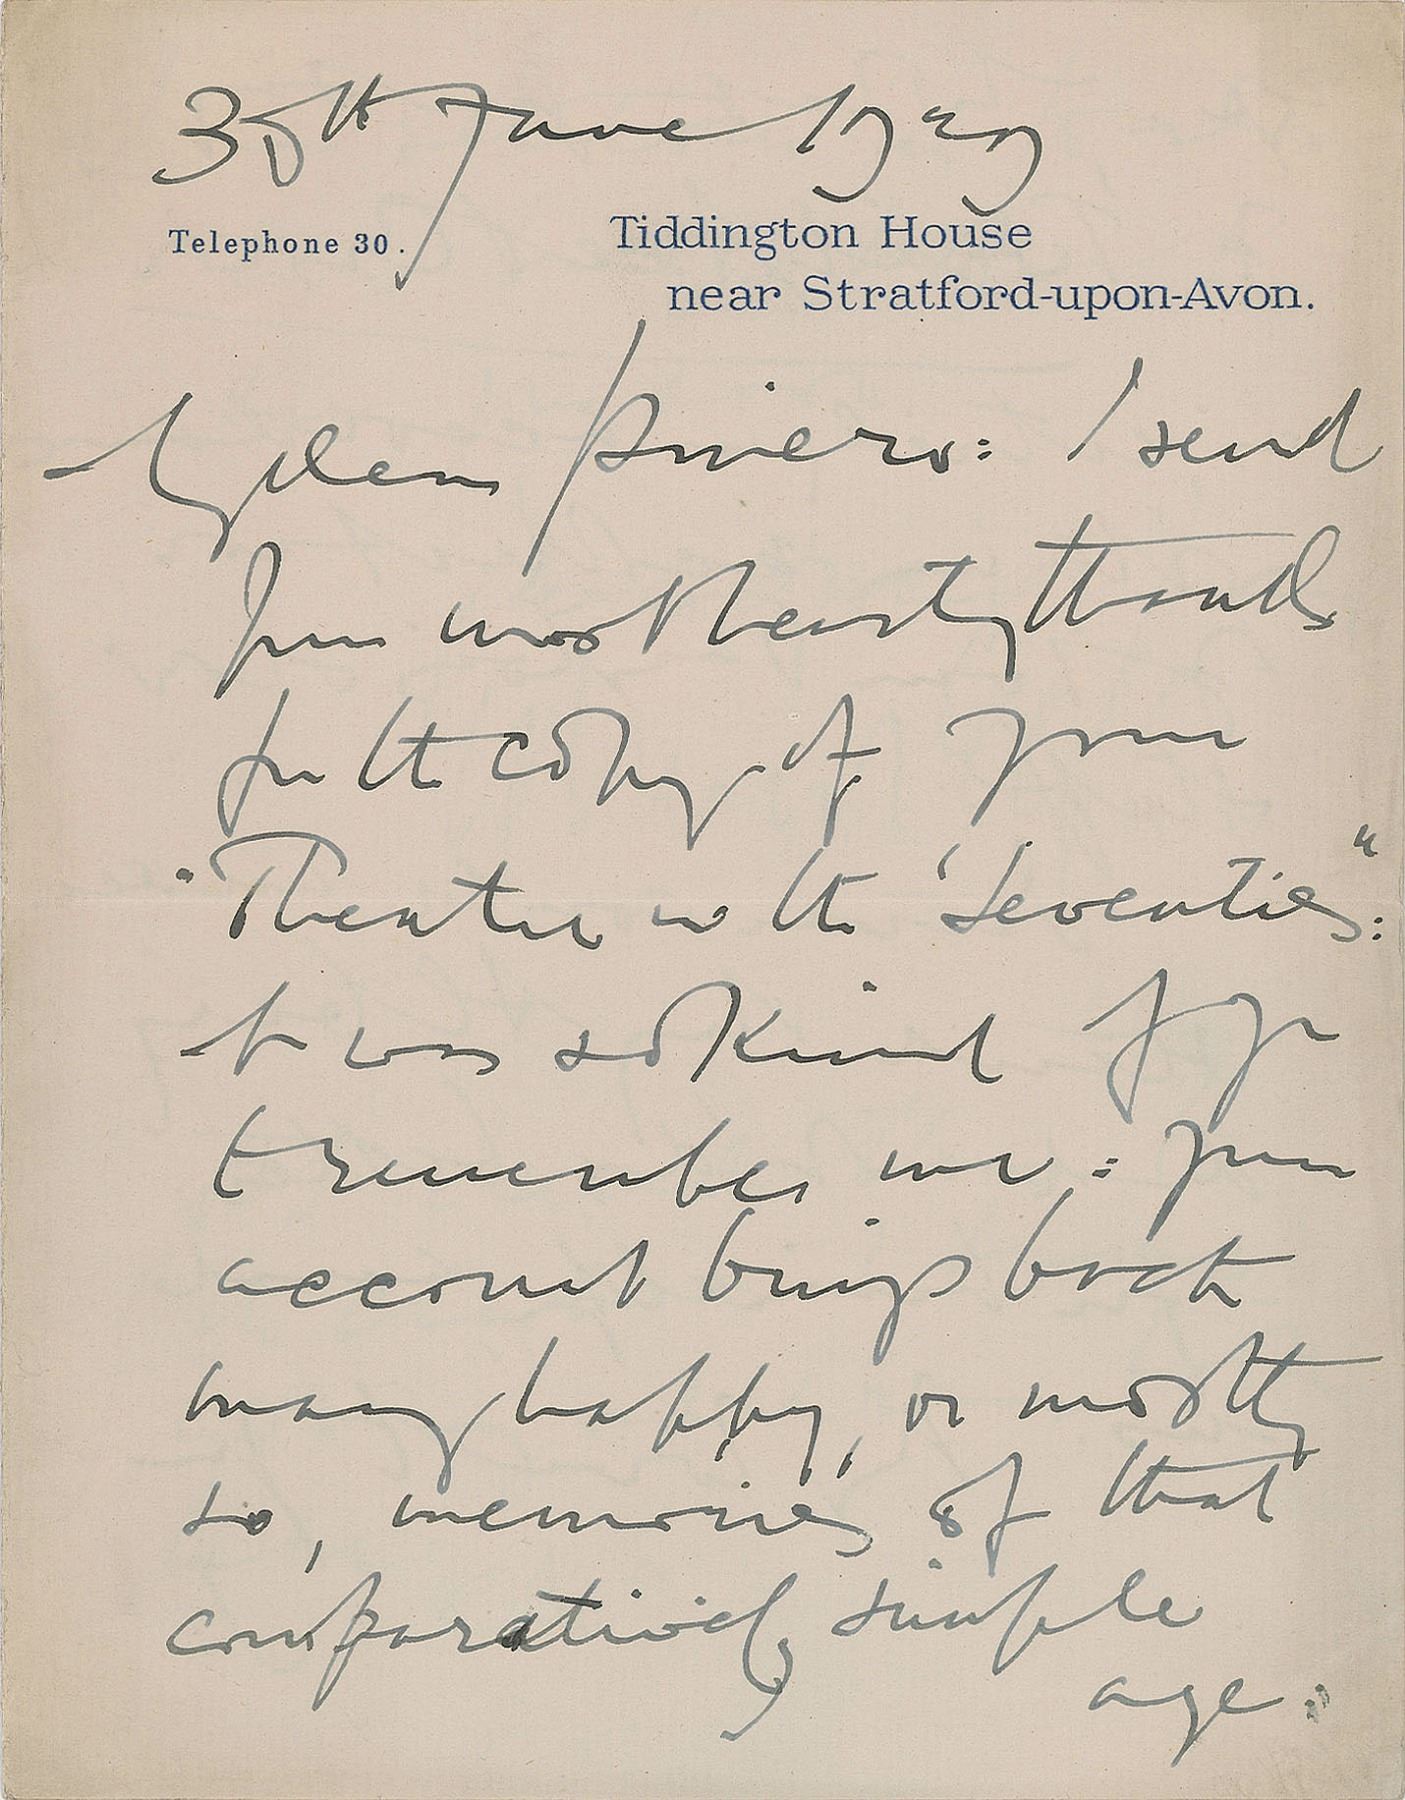 30th June 1929
Telephone 30. Tiddington House
near Stratford-upon-Avon.
My dear Pinero: I send
you most hearty thanks
for the copy of your
"Theatre in the 'Seventies":
it was so kind of you
to remember me: your
account brings back
many happy, or mostly
so, memories of that
comparatively simple
age: